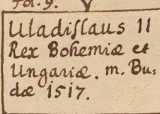 fol. 9.
Uladislaus II
Rex Bohemiæ et
Ungariæ. m. Bu-
dæ 1517.